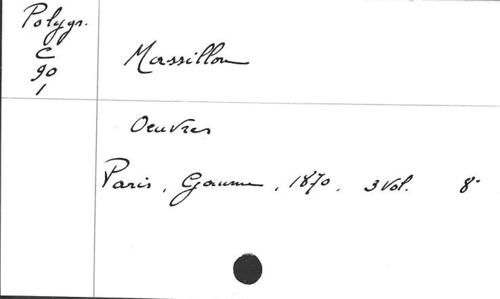 Polygr.
C
90
1
Massillon
Oeuvres
Paris, Gaume, 1870. 3 Vol. 8°